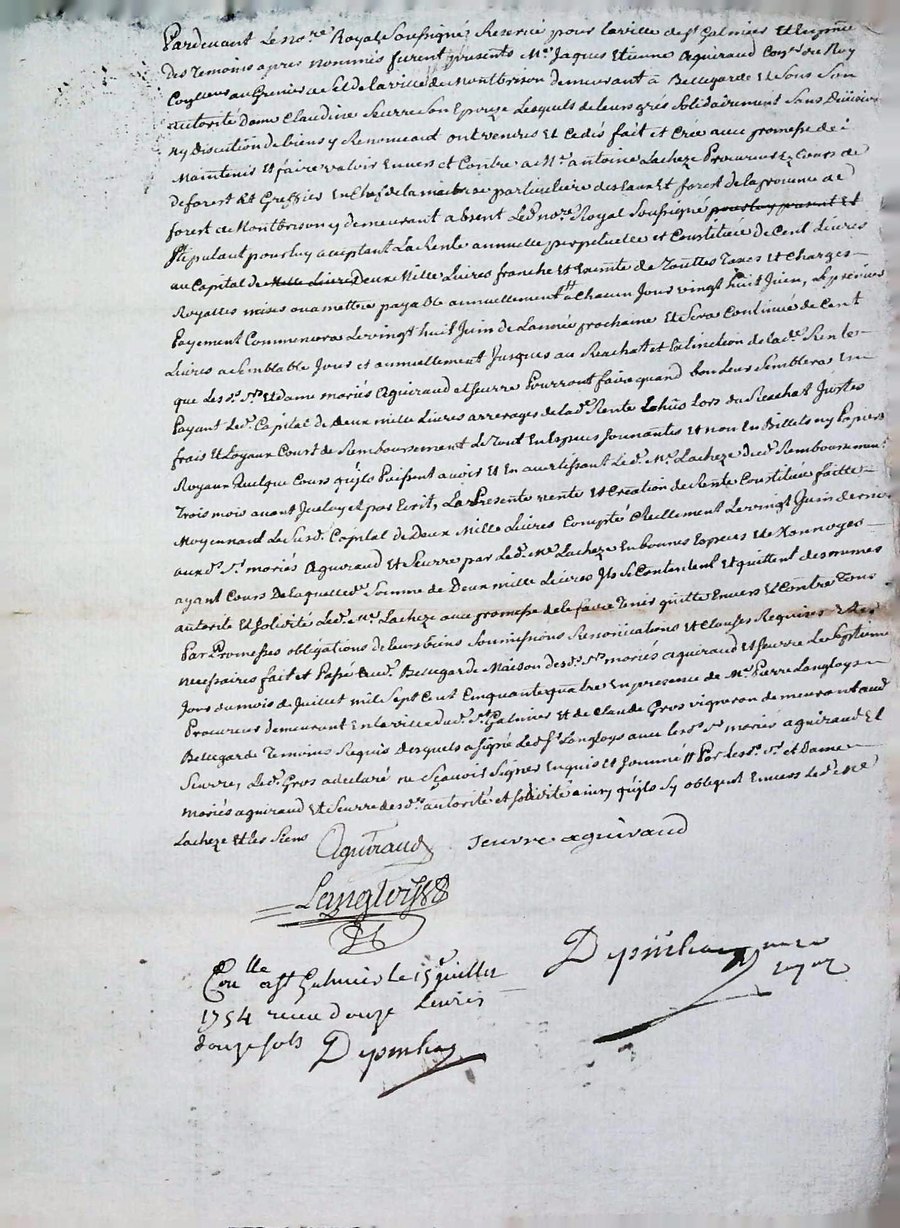 Pardevant Le no.re Royal Soussigné Reservé pour la ville de st Galmier Et En presence
Des Temoins apres nommés furent presents Mr Jaques Etienne Aguiraud Con.er du Roy
au Grenier a Sel de la ville de Montbrison demeurant à Bellegarde Et Sous Son
autorité Dame Claudine Jeurre Son Epouze Lesquels de leurs grés Solidairement Sans Division
ny Discution de biens y Renonceant ont vendus Et Cedés fait et Créé avec promesse de
Maintenir Et faire valoir Envers et Contre a Mr. antoine Lacheze Procureur Ez Cours de
Deforest Et Greffier En Chef de la maitrise particuliere des Eaux Et forest de la province de
forest de Montbrison y demeurant absent Led. no.re Royal Soussigné pour luy present Et
Stipulant pour luy aceptant La Rente annuelle perpetuelle et Constituée de Cent Livres
au Capital de Mille Livres Deux Mille Livres franche Et Exempte de Touttes Taxes et Charges
Royalles mises ou a mettre payable annuellement # a Chacun Jour vingt huit Juin, Le premier
Payement Commencera Le vingt huit Juin de Lannée prochaine Et Sera Continuée de Cent
Livres a Semblable Jour et annuellement Jusques au Reachat et Extinction de lad.e Rente
que Les s.rs Et Dame mariés Aguiraud et Jeurre Pourront faire quand bon Leur Semblera En
Payant Led. Capital de Deux mille Livres arrerages de lad.e Rente Echus Lors du Reachat Justes
frais Et Loyaux Couts de Remboursement Le Tout En Especes Sonnantes Et non En Billets ny Papiers
Royaux Quelque Cours qu'ils Puissent avoir Et En avertissant Led. Mr. Lacheze dud. Remboursement
Trois mois avant Jceluy et par Ecrit, La Presente vente Et Creation de Rente Constituée faitte
Moyennant Le Susd. Capital de Deux Mille Livres Compté Réellement Le vingt Juin dernier
auxd. s.rs mariés Aguiraud Et Jeurre par Led. Mr. Lacheze En bonnes Especes Et de Monnoyes
ayant Cours De laquelle d.e Somme de Deux mille Livres Jls Se Contentent Et quittent des memes
autorité Et solidité Led. Mr. Lacheze avec promesse de le faire Tenir quitte Envers Et Contre Tous
Par Promesses obligations de leurs biens Soumissions Renonciations et Clauses Requises
necessaires fait et Passé aud. Bellegarde Maison desd. s.rs mariés aguiraud et Jeurre Le Septieme
Jour du mois de Juillet mil Sept Cent Cinquante quatre En presence de Mr. Pierre Langloys
Procureur demeurant En la ville dud. st. Galmier Et de Claude Gros vigneron demeurant aud.
Bellegarde Temoins Requis Desquels a signé Led. Sr. Langloys avec lesd. s.rs mariés aguiraud Et
Jeurre, Led. Gros a declaré ne Sçavoir Signer Enquis Et Sommé # Par Lesd. s.rs et Dame
mariés aguiraud Et Jeurre desd. autorité et solidité qu'ils Sy obligent Envers Led. Mr.
Lacheze Et les Siens
Aguiraud Jeurre aguiraud
Langlois
Depinhac no.re royal
Con.lle a St Galmier le 15e juillet
1754 receu douze Livres
douze sols Depinhac